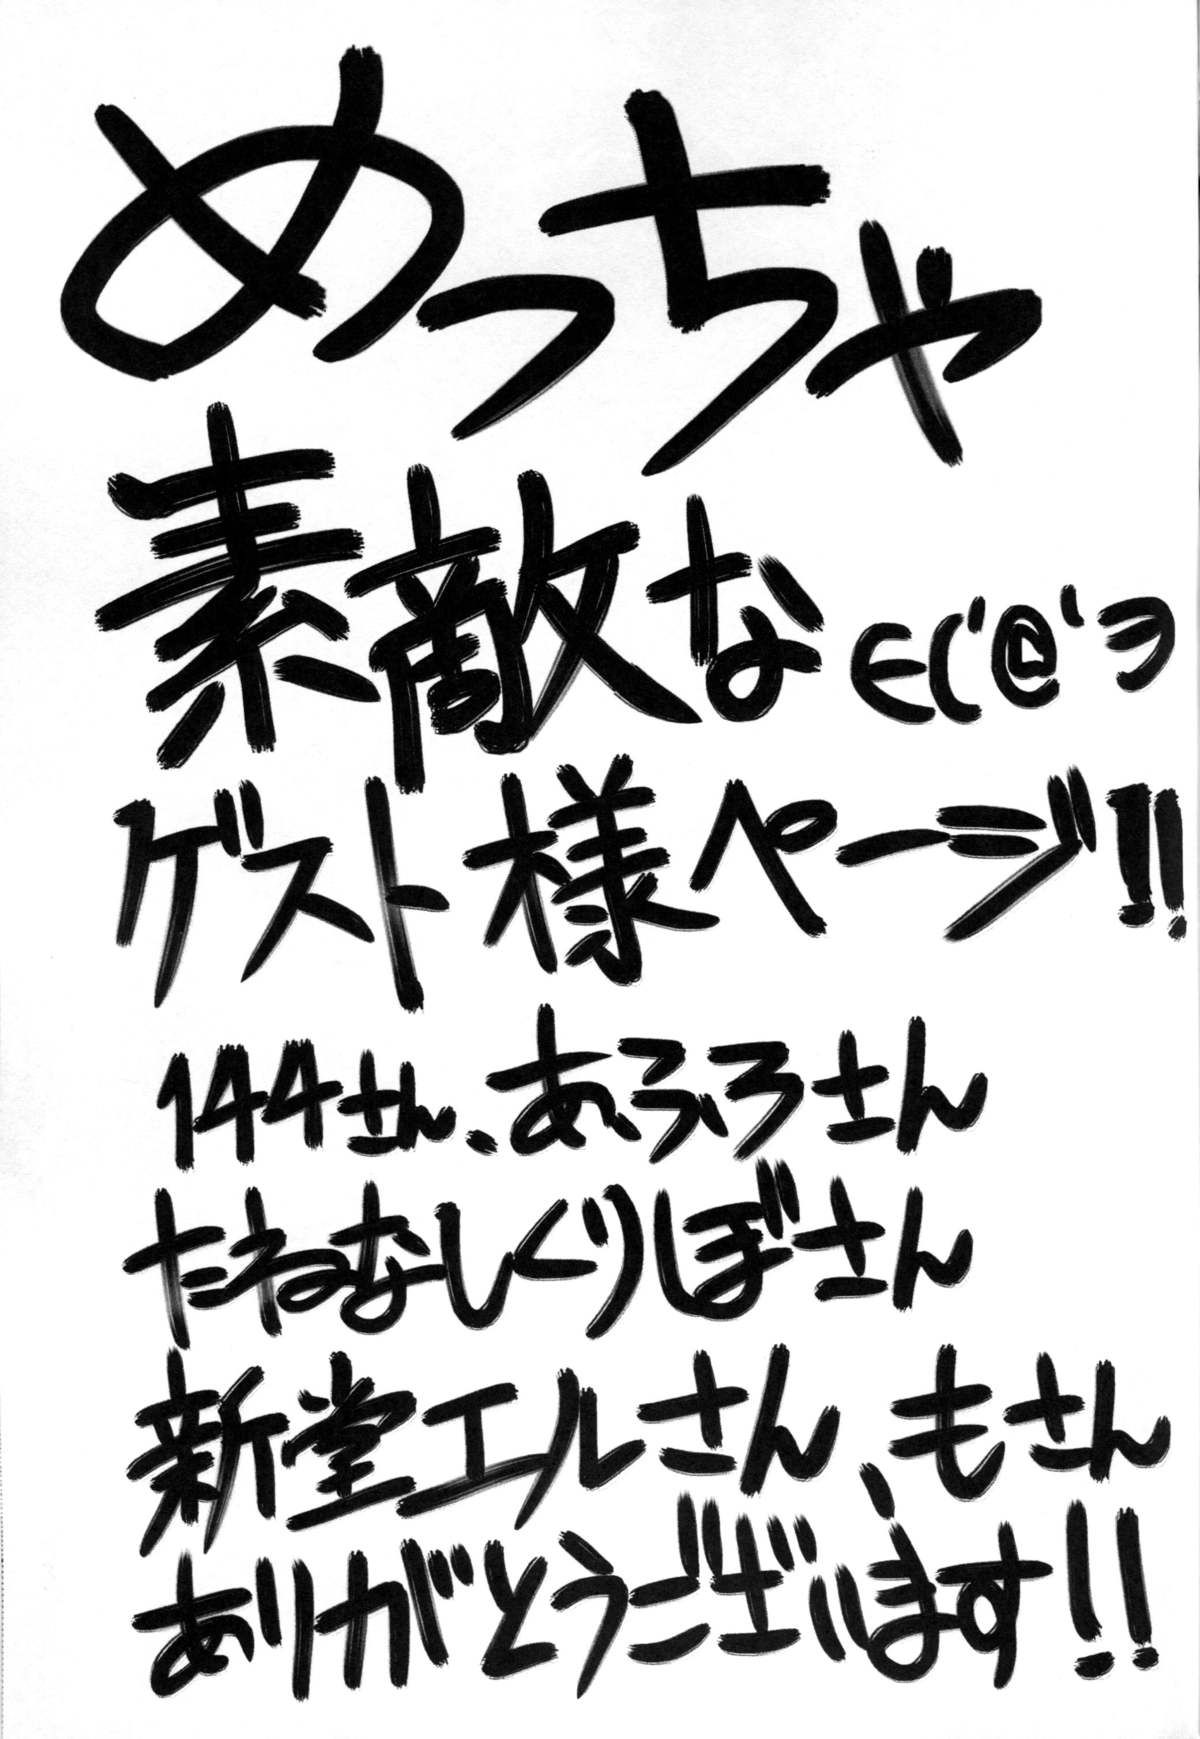 めっちゃ
素敵な ∈(´@`ヨ
ゲスト様ページ!!
144さん、あふろさん
たねなしくりぼさん
新堂エルさん、もさん
ありがとうございます!!